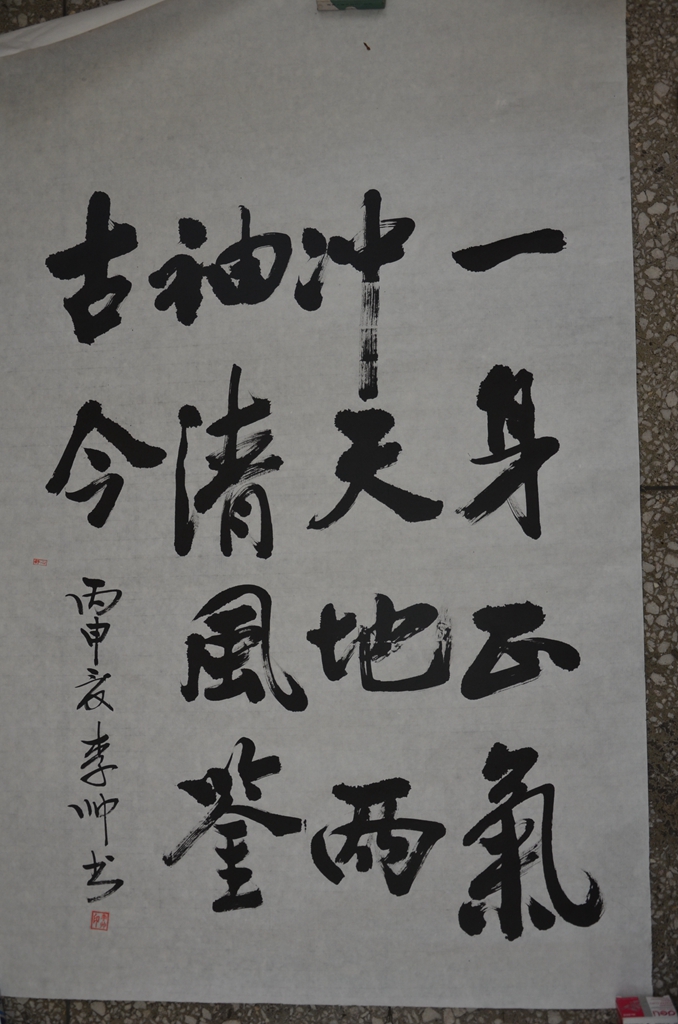 一身正氣
冲天地兩
袖清風鉴
古今
丙申夏李帅书